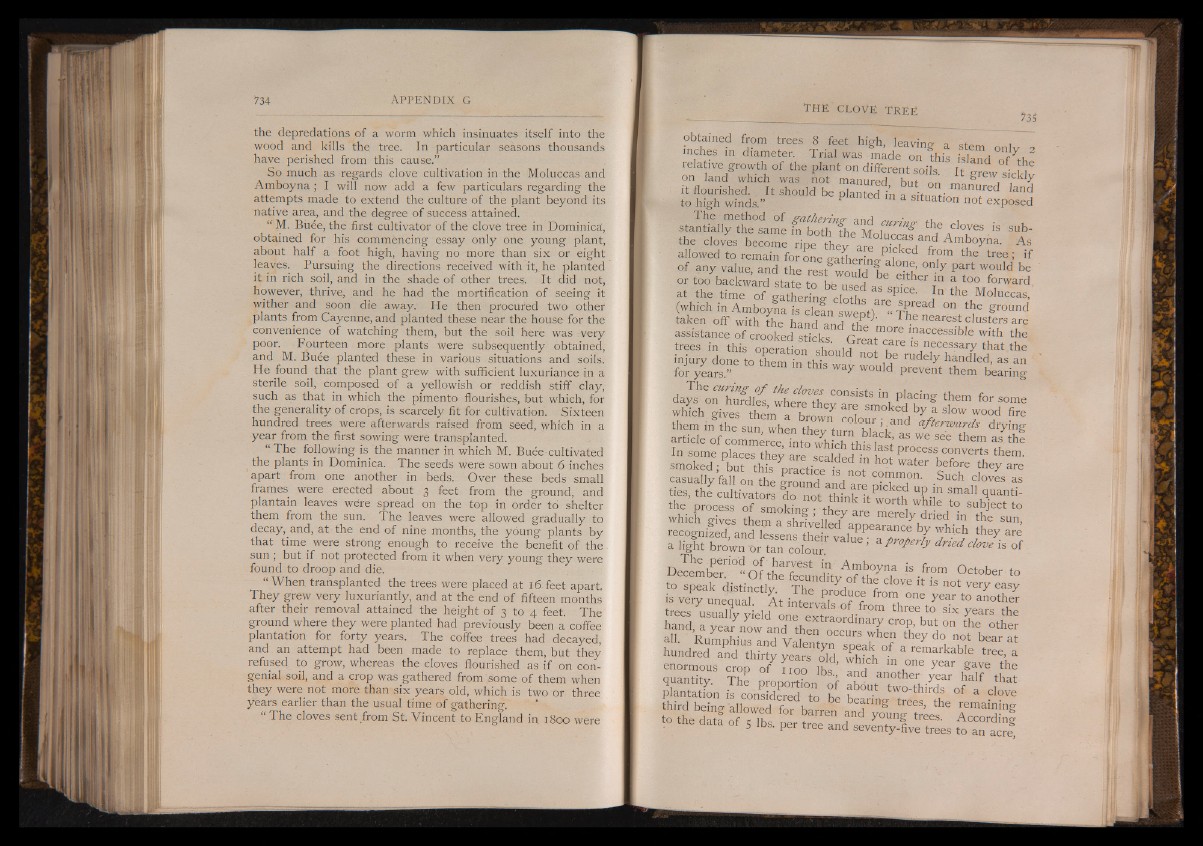 734
APPENDIX G
the depredations of a worm which insinuates itself into the
wood and kills the tree. In particular seasons thousands
have perished from this cause.”
So much as regards clove cultivation in the Moluccas and
Amboyna ; I will now add a few particulars regarding the
attempts made to extend the culture of the plant beyond its
native area, and the degree of success attained.
“ M. Buée, the first cultivator of the clove tree in Dominica,
obtained for his commencing essay only one young plant,
about half a foot high, having no more than six or eight
leaves. Pursuing the directions received with it, he planted
it in rich soil, and in the shade of other trees. It did not,
however, thrive, and he had the mortification of seeing it
wither and soon die away. He then procured two other
plants from Cayenne, and planted these near the house for the
convenience of watching them, but the soil here was very
poor. Fourteen more plants were subsequently obtained,
and M. Buée planted these in various situations and soils.
He found that the plant grew with sufficient luxuriance in a
sterile soil, composed of a yellowish or reddish stiff clay,
such as that in which the pimento flourishes, but which, for
the generality of crops, is scarcely fit for cultivation. Sixteen
hundred trees were afterwards raised from seed, which in a
year from the first sowing were transplanted.
“ The following is the manner in which M. Buée cultivated
the plants in Dominica. The seeds were sown about 6 inches
apart from one another in beds. Over these beds small
frames were erected about 3 feet from the ground, and
plantain leaves were spread on the top in order to shelter
them from the sun. The leaves were allowed gradually to
decay, and, at the end of nine months, the young plants by
that time were strong enough to receive the benefit of the
sun ; but if not protected from it when very young they were
found to droop and die.
“ When transplanted the trees were placed at 16 feet apart.
They grew very luxuriantly, and at the end of fifteen months
after their removal attained the height of 3 to 4 feet. The
ground where they were planted had previously been a coffee
plantation for forty years. The coffee trees had decayed,
and an attempt had been made to replace them, but they
refused to grow, whereas the cloves flourished as if on con-
genial soil, and a crop was gathered from some of them when
they were not more than six years old, which is two or three
years earlier than the usual time of gathering.
“ The cloves sent from St. Vincent to England in 1800 were
THE CLOVE TREE
735
obtained from trees 8 feet high, leaving a stem only 2
inches in diameter. Trial was made on this island of the
relative growth of the plant on different soils. It grew sickly
on land which was not manured, but on manured land
it flourished. It should be planted in a situation not exposed
to high winds.”
The method of gathering and curing the cloves is sub-
stantially the same in both the Moluccas and Amboyna. As
the cloves become ripe they are picked from the tree ; if
allowed to remain for one gathering alone, only part would be
of any value, and the rest would be either in a too forward
or too backward state to be used as spice. In the Moluccas,
at the time of gathering cloths are spread on the ground
(which in Amboyna is clean swept). “ The nearest clusters are
taken off with the hand and the more inaccessible with the
assistance of crooked sticks. Great care is necessary that the
trees in this operation should not be rudely handled, as an
injury done to them in this way would prevent them bearing
for years.”
The curing of the cloves consists in placing them for some
days on hurdles, where they are smoked by a slow wood fire
which gives them a brown colour ; and afterwards drying
them in the sun, when they turn black, as we see them as the
article of commerce, into which this last process converts them.
In some places they are scalded in hot water before they are
smoked ; but this practice is not common. Such cloves as
casually fall on the ground and are picked up in small quanti-
ties, the cultivators do not think it worth while to subject to
the process of smoking ; they are merely dried in the sun,
which gives them a shrivelled appearance by which they are
recognized, and lessens their value ; a properly dried clove is of
a light brown or tan colour.
The period of harvest in Amboyna is from October to
December. “ Of the fecundity of the clove it is not very easy
to speak distinctly. The produce from one year to another
is very unequal. At intervals of from three to six years the
trees usually yield one extraordinary crop, but on the other
hand, a year now and then occurs when they do not bear at
all. Rumphius and Valentyn speak of a remarkable tree, a
hundred and thirty years old, which in one year gave the
enormous crop of 1100 lbs., and another year half that
quantity. The proportion of about two-thirds of a clove
plantation is considered to be bearing trees, the remaining
third being allowed for barren and young trees. According
to the data of 5 lbs. per tree and seventy-five trees to an acre,